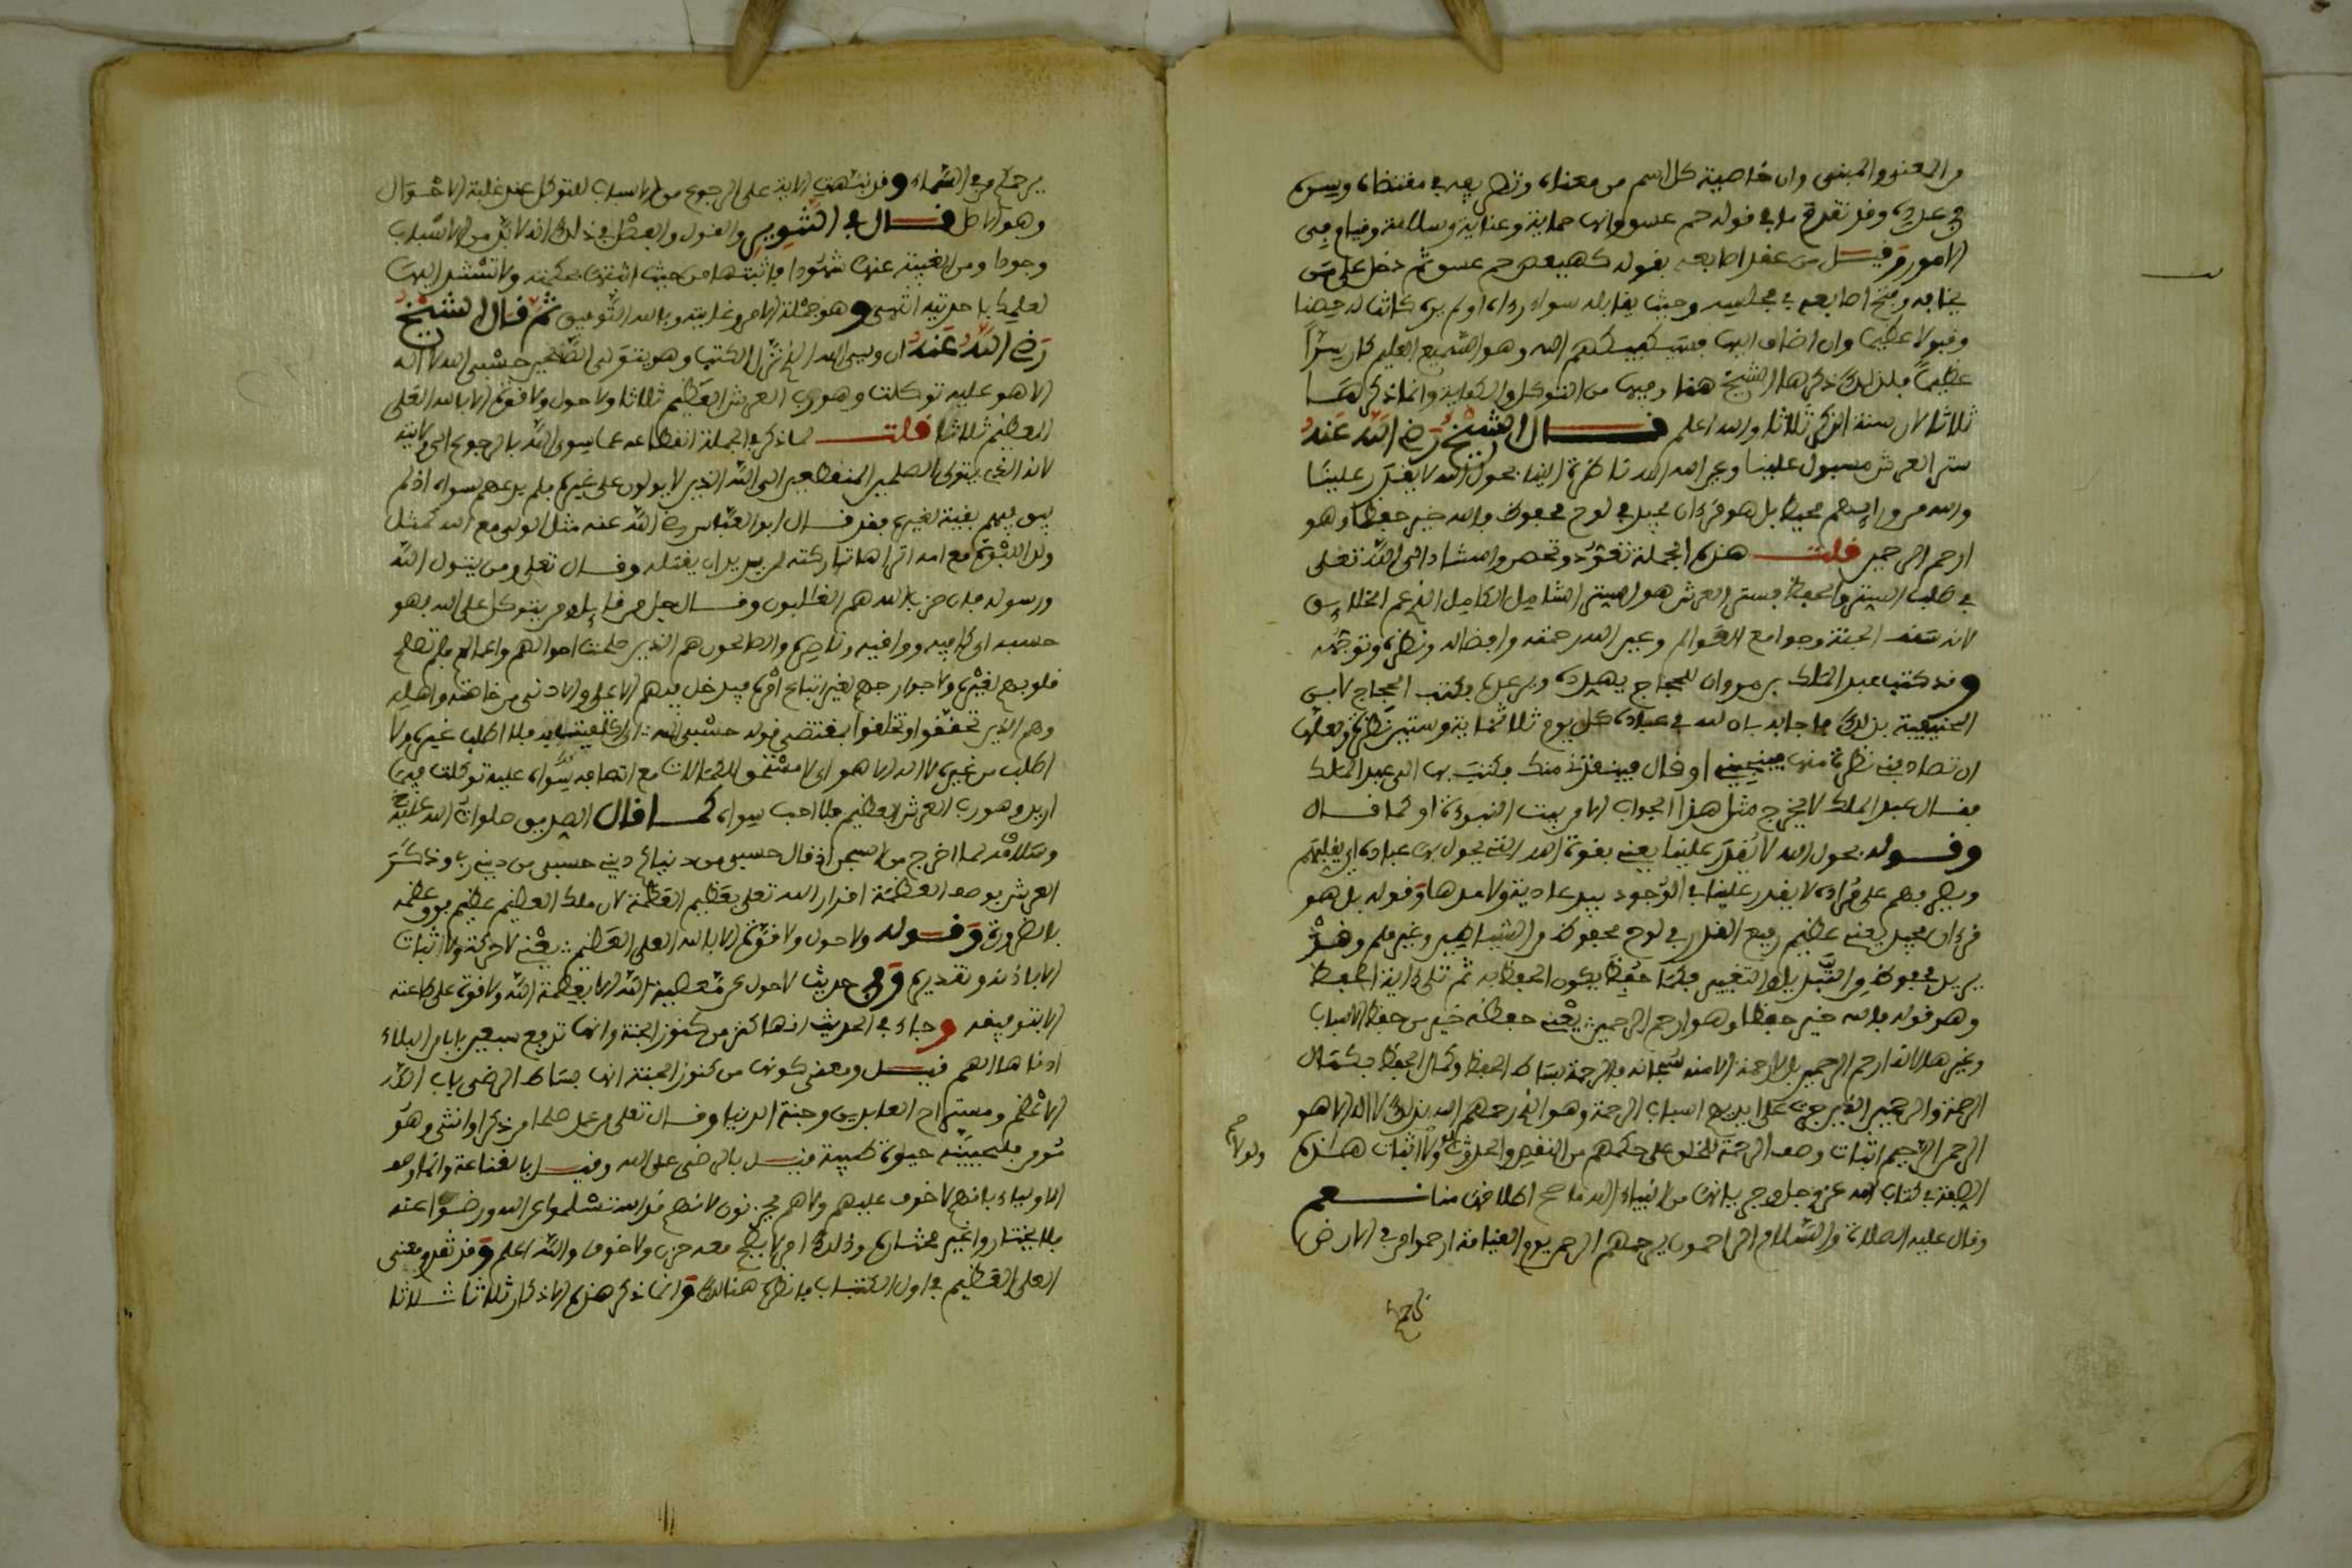 من المعنى والمبنى وان خاصية كل اسم من معناه وتصريفه في مقتضاه وسره
في عدده وقد تقدم ما في قوله حم عسق وانها حماية وعناية وسلامة وقيام من
الامور وقيل من عقد اصابعه بقوله كهيعص حم عسق ثم دخل على من
يخافه وفتح اصابعه في مجلسه وحيث يقابله سواء رءاه او لم يره كانت له حصنا
وقبولا عظيما وان اضاف اليها فسيكفيكهم الله وهو السميع العليم كان سرا
عظيما فلذلك ذكرها الشيخ هنا وفيها من التوكل والكفاية وانما ذكرها
ثلاثا لان سنة الذكر ثلاثا والله اعلم قال الشيخ رضي الله عنه
ستر العرش مسبول علينا وعين الله ناظرة الينا بحول الله لا يقدر علينا
والله من ورائهم محيط بل هو قرءان مجيد في لوح محفوظ فالله خير حفظا وهو
ارحم الراحمين قلت هذه الجملة تعوذ وتحصن واستناد الى الله تعلى
في طلب الستر والحفظ فستر العرش هو الستر الشامل الكامل الذي عم الخلايق
لانه سقف الجنة وجوامع العوالم وعين الله رحمته وافضاله ونظره وتوجهه
وقد كتب عبد الملك بن مروان للحجاج يهدده ويرعده فكتب الحجاج لابن
الحنفية بذلك فاجابه بان لله في عباده كل يوم ثلاثماية وستين نظرة ولعلها
ان تصادفني نظرة منها فينجيني او قال فينقذني منك فكتب بها الى عبد الملك
فقال عبد الملك لا يخرج مثل هذا الجواب الا من بيت النبوءة او كما قال
وقوله بحول الله لا يقدر علينا يعني بقوة الله التي يحول بها عباده اي يقلبهم
ويصرفهم على مراده لا يقدر علينا في الوجود بيد عادية ولا مدها وقوله بل هو
قرءان مجيد يعني عظيم رفيع القدر في لوح محفوظ من الشياطين وغيرهم وقد
يريد محفوظ من التبديل والتغيير فكما حفظ يكون الحفظ به ثم تلى ءاية الحفظ
وهو قوله فالله خير حفظا وهو ارحم الراحمين يعني حفظه خير من حفظ الاسباب
وغيرها لانه ارحم الراحمين بل لا رحمة الا منه سبحانه فالرحمة بساط الحفظ وكمال الحفظ بكمال
الرحمة والراحمين الذين جرت على ايديهم اسباب الرحمة وهو الذي رحمهم الله بذلك لا اله الا هو
الرحمن الرحيم اثبات وصف الرحمة للخلق على حكمهم من النقص والحدوث ولولا اثبات هذه
ولولا صح
الصفة في كتاب الله عز وجل وجريانها من انبياء الله ما صح اطلاقها منا نعم
وقال عليه الصلاة والسلام الراحمون يرحمهم الرحمن يوم القيامة ارحموا من في الارض
يرحمكم
يرحمكم من في السماء وقد نبهت الاية على الرجوع من الاسباب للتوكل عند غلبة الاحوال
وهو الاصل قال في التنوير والقول والفصل في ذلك انه لا بد من الاسباب
وجودا ومن الغيبة عنها شهودا فاثبتها من حيث اثبتها بحكمته ولا تستند اليها
لعلمك باحديته انتهى وهو جملة الامر وغايته وبالله التوفيق ثم قال الشيخ
رضي الله عنه ان وليي الله الذي نزل الكتب وهو يتولى الصلحين حسبي الله لا اله
الا هو عليه توكلت وهو رب العرش العظيم ثلاثا ولا حول ولا قوة الا بالله العلي
العظيم ثلاثا قلت لما ذكر في الجملة انقطاعه عما سوى الله بالرجوع الى ولايته
لانه الذي يتولى الصلحين المنقطعين الى الله الذين لا يولون على غيره فلم يدعهم سواه اذ لم
يبق فيهم بقية لغيره فقد قال ابو العباس رضي الله عنه مثل الولي مع الله كمثل
ولد اللبوة مع امه اتراها تاركته لمن يريد ان يغتاله وقال تعلى ومن يتول الله
ورسوله فان حزب الله هم الغالبون وقال جل من قايل ومن يتوكل على الله فهو
حسبه اي كافيه وواقيه وناصره والصالحون هم الذين صلحت احوالهم واعمالهم فلم تصلح
قلوبهم لغيره ولا جوارحهم لغير اتباع امره فيدخل فيهم الاعلى والادنى من خاصته واهله
وهم الذين تحققوا وتخلقوا بمقتضى قوله حسبي الله اي كفيت به فلا اطلب غيره ولا
اطلب من غيره لا اله الا هو اي لا مستحق للكمالات مع اتصافه سواه عليه توكلت فيما
اريد وهو رب العرش العظيم فلا احب سواه كما قال الصديق صلوات الله عليه
وسلامه لما اخرج من السجن اذ قال حسبي من دنياي ديني حسبي من ديني ربي وذكر
العرش بوصف العظمة اقرار الله تعلى بعظيم العظمة لان ملك العظيم عظيم فوق عظمه
بالضرورة وقوله ولا حول ولا قوة الا بالله العلي العظيم يعني لا حركة ولا ثبات
الا باذنه وتقديره وفي حديث لا حول عن معصية الله الا بعصمة الله ولا قوة على طاعته
الا بتوفيقه وجاء في الحديث انها كنز من كنوز الجنة وانها ترفع سبعين بابا من البلاء
ادناها الهم قيل ومعنى كونها من كنوز الجنة انها بساط الرضى باب الله
الاعظم ومستراح العابدين وجنة الدنيا وقال تعلى من عمل صلحا من ذكر او انثى وهو
مومن فلنحيينه حيوة طيبة قيل بالرضى على الله وقيل بالقناعة وانما وصف
الاولياء بانهم لا خوف عليهم ولا هم يحزنون لانهم قد استسلموا عن الله ورضوا عنه
فلا يختاروا غير مختاره وذلك امر لا يصح معه حزن ولا خوف والله اعلم وقد تقدم معنى
العلي العظيم في اول الكتاب فانظره هنالك وانما ذكر هذه الاذكار ثلاثا ثلاثا